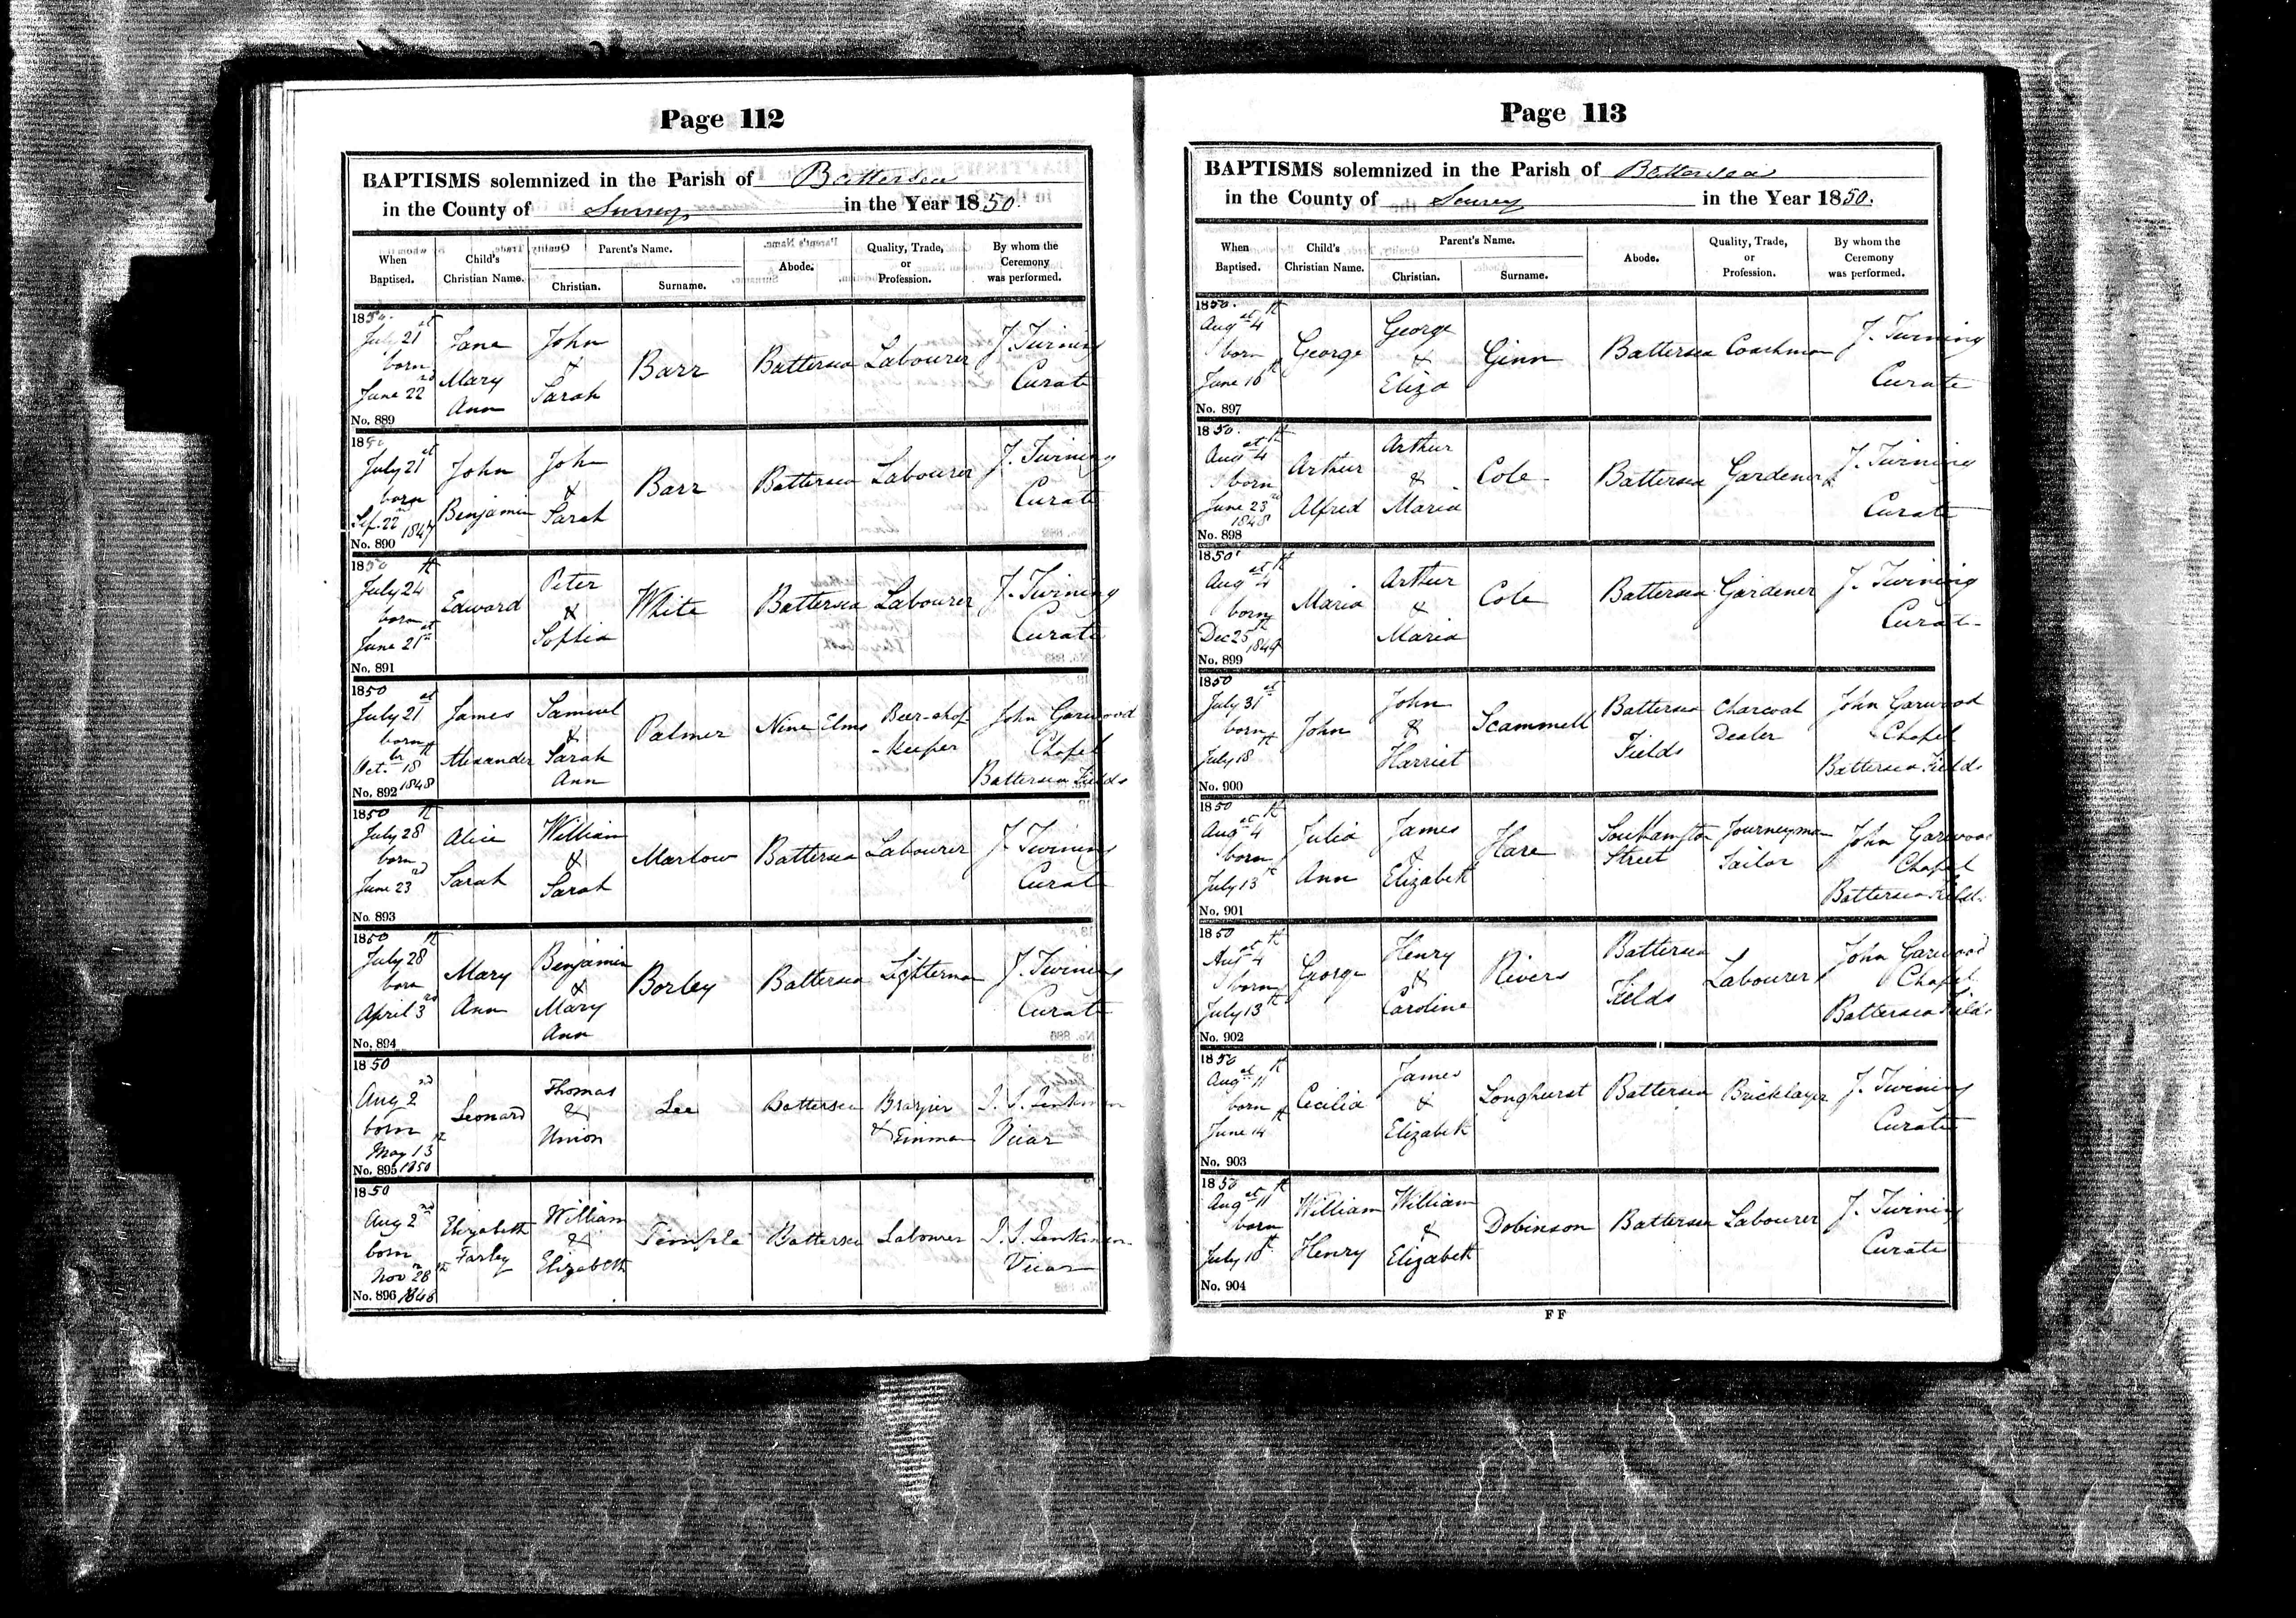 Page 112
BAPTISMS solemnized in the Parish of Battersea
in the County of Surrey in the Year 1850.
When Baptised.
Child's Christian Name.
Parent's Name.
Christian.
Surname.
Abode.
Quality, Trade, or Profession.
By whom the Ceremony was performed.
1850.
July 21st born June 22nd
Jane Mary Ann
John & Sarah
Barr
Battersea
Labourer
J. Twining Curate
No. 889
1850
July 21st born Sep. 22nd 1847
John Benjamin
John & Sarah
Barr
Battersea
Labourer
J. Twining Curate
No. 890
1850
July 24th born June 21st
Edward
Peter & Sophia
White
Battersea
Labourer
J. Twining Curate
No. 891
1850
July 21st born Octbr 18th 1848
James Alexander
Samuel & Sarah Ann
Palmer
Nine Elms
Beer-shop-keeper
John Garwood Chapel Battersea Fields
No. 892
1850
July 28th born June 23rd
Alice Sarah
William & Sarah
Marlow
Battersea
Labourer
J. Twining Curate
No. 893
1850
July 28th born April 3rd
Mary Ann
Benjamin & Mary Ann
Borley
Battersea
Lighterman
J. Twining Curate
No. 894
1850
Aug 2nd born May 13th 1850
Leonard
Thomas & Union
Lee
Battersea
Brazier & Tinman
J. S. Jenkinson Vicar
No. 895
1850
Aug 2nd born Nov 28th 1846
Elizabeth Farley
William & Elizabeth
Temple
Battersea
Labourer
J. S. Jenkinson Vicar
No. 896
Page 113
BAPTISMS solemnized in the Parish of Battersea
in the County of Surrey in the Year 1850.
When Baptised.
Child's Christian Name.
Parent's Name.
Christian.
Surname.
Abode.
Quality, Trade, or Profession.
By whom the Ceremony was performed.
1850.
Augst 4th born June 16th
George
George & Eliza
Ginn
Battersea
Coachman
J. Twining Curate
No. 897
1850.
Augst 4th born June 23rd 1848
Arthur Alfred
Arthur & Maria
Cole
Battersea
Gardener
J. Twining Curate
No. 898
1850
Augst 4th born Dec 25th 1849
Maria
Arthur & Maria
Cole
Battersea
Gardener
J. Twining Curate
No. 899
1850
July 31st born July 18th
John
John & Harriet
Scammell
Battersea Fields
Charcoal Dealer
John Garwood Chapel Battersea Fields
No. 900
1850
Augst 4th born July 13th
Julia Ann
James & Elizabeth
Hare
Southampton Street
Journeyman Tailor
John Garwood Chapel Battersea Fields
No. 901
1850
Augst 4th born July 13th
George
Henry & Caroline
Rivers
Battersea Fields
Labourer
John Garwood Chapel Battersea Fields
No. 902
1850
Augst 11th born June 14th
Cecilia
James & Elizabeth
Longhurst
Battersea
Bricklayer
J. Twining Curate
No. 903
1850
Augst 11th born July 18th
William Henry
William & Elizabeth
Dobinson
Battersea
Labourer
J. Twining Curate
No. 904
FF